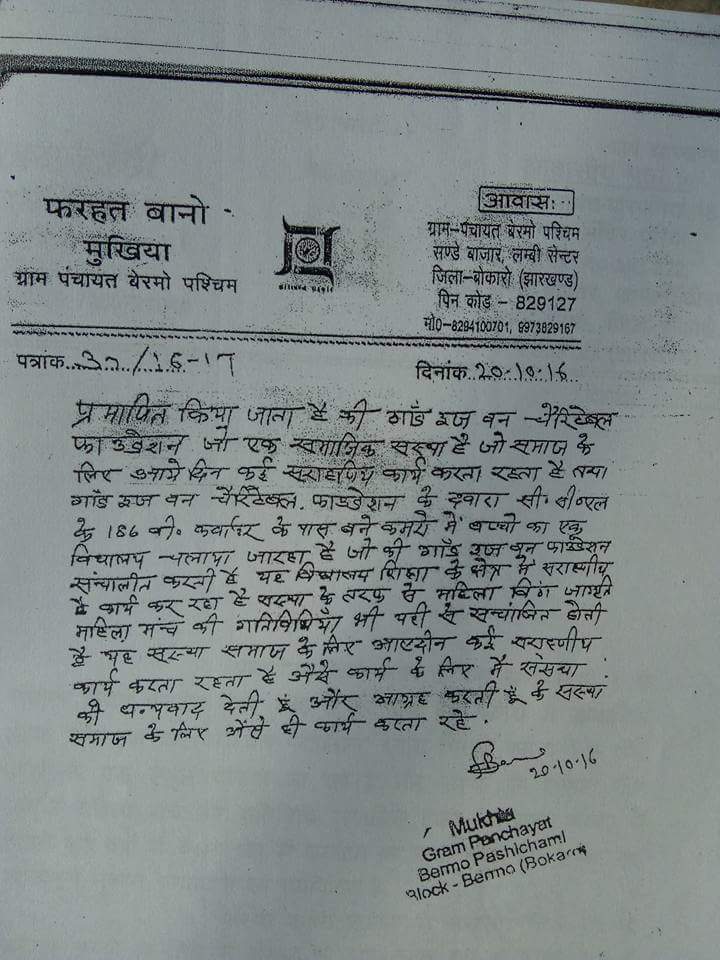 फरहत बानो
मुखिया
ग्राम पंचायत बेरमो पश्चिम
आवास:
ग्राम-पंचायत बेरमो पश्चिम
सण्डे बाजार, लम्बी सेन्टर
जिला-बोकारो (झारखण्ड)
पिन कोड - 829127
मो0-8294100701, 9973829167
पत्रांक 37/16-17
दिनांक 20-10-16
प्रमापित किया जाता है की गॉड इज वन चैरिटेबल
फाउडेशन जो एक समाजिक सस्था है जो समाज के
लिए आये दिन कई सराहणिय कार्य करता रहता है तथा
गॉड इज वन चैरिटेबल फाउडेशन के द्वारा सी० सी०एल
के 186 वी. कर्वाटर के पास बने कमरो में बच्चो का एक
विद्यालय चलाया जारहा है जो की गॉड इज वन फाउडेशन
संन्चालीत करती है यह विद्यालय शिक्षा के क्षेत्र में सराहणीय
है कार्य कर रहा है सस्था के तरफ से महिला विंग जागृति
महिला मंच की गतिविधियाँ भी यही से सन्चालित होती
है यह सस्था समाज के लिए आएदीन कई सराहणीय
कार्य करता रहता है ऐसे कार्य के लिए मैं संस्था
को धन्यवाद देती हूं और आग्रह करती हूँ के सस्था
समाज के लिए ऐसे ही कार्य करता रहे.
20-10-16
Mukhia
Gram Panchayat
Bermo Pashichaml
Block - Bermo (Bokaro